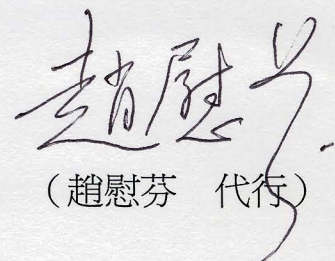 趙慰芬
（趙慰芬　代行）